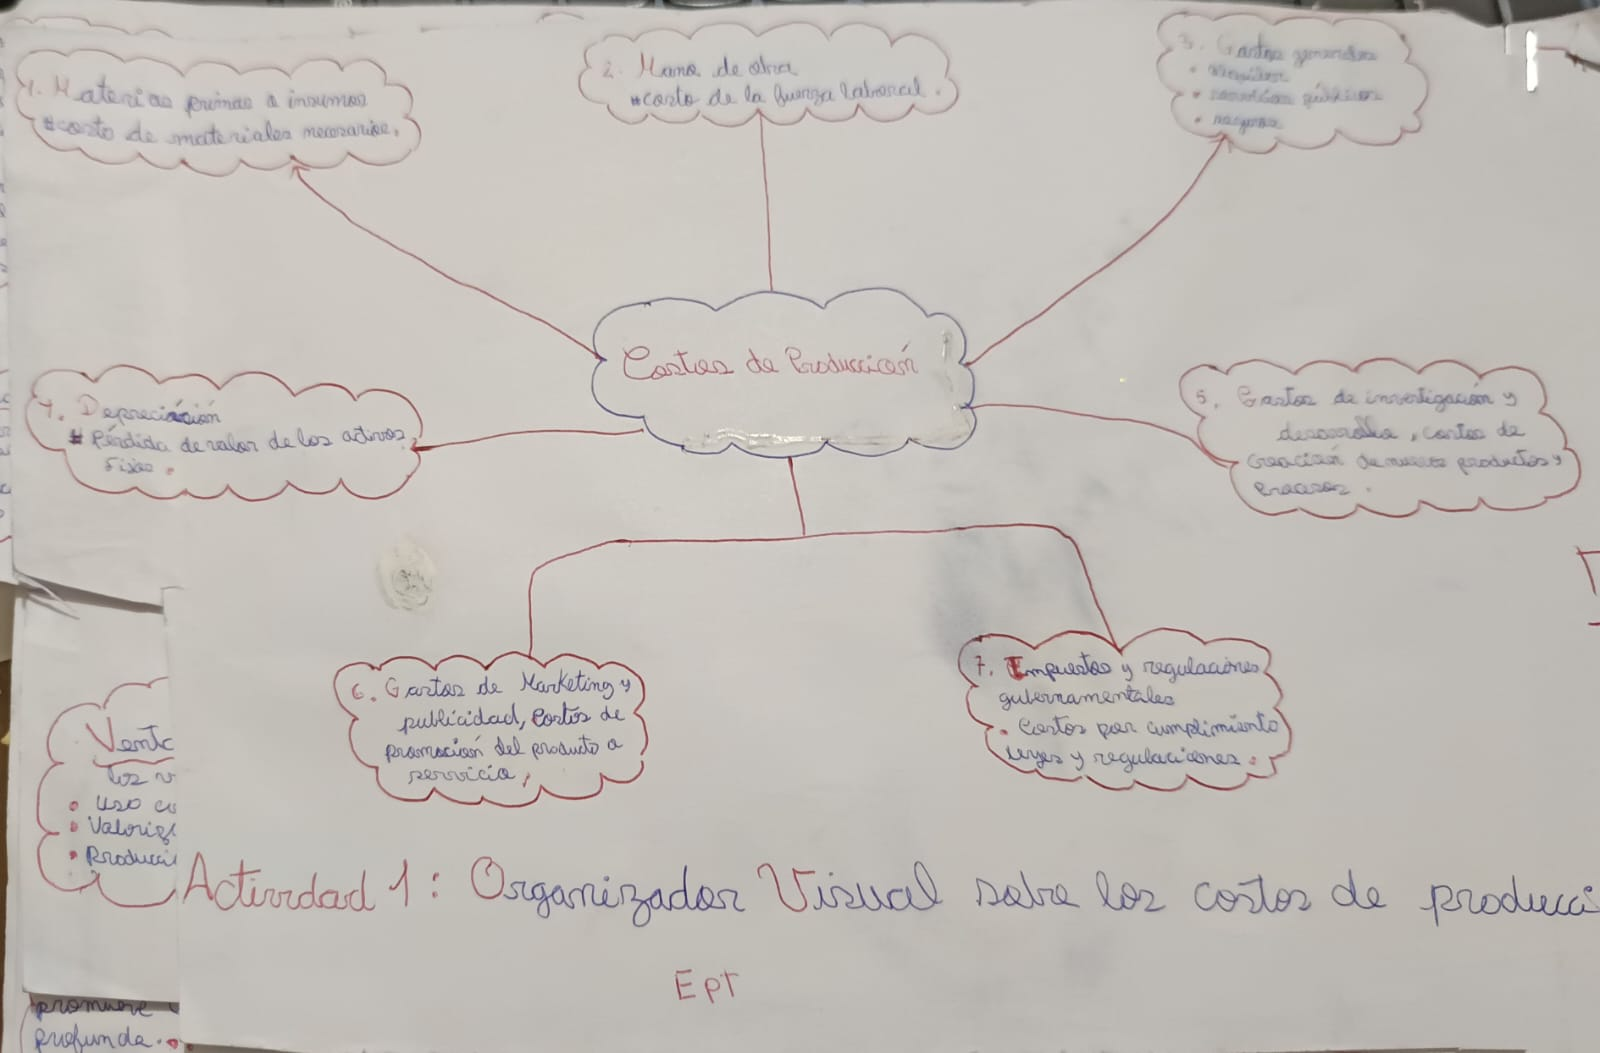 1. Materias primas o insumos
*costo de materiales necesarios.
2. Mano de obra
*costo de la fuerza laboral.
3. Gastos generales
• alquiler
• servicios públicos
• seguros
Costos de Producción
4. Depreciación
* Pérdida de valor de los activos
Fisio.
5. Gastos de investigación y
desarrollo, costos de
Creación de nuevos productos y
Procesos.
6. Gastos de Marketing y
publicidad, Costos de
promoción del producto o
servicio,
7. Impuestos y regulaciones
gubernamentales
• Costos por cumplimiento
leyes y regulaciones.
Venta
los v
• Uso co
• Valoriz
• Producci
Actividad 1: Organizador Visual sobre los costos de producci
Ept
promueve
profunda.